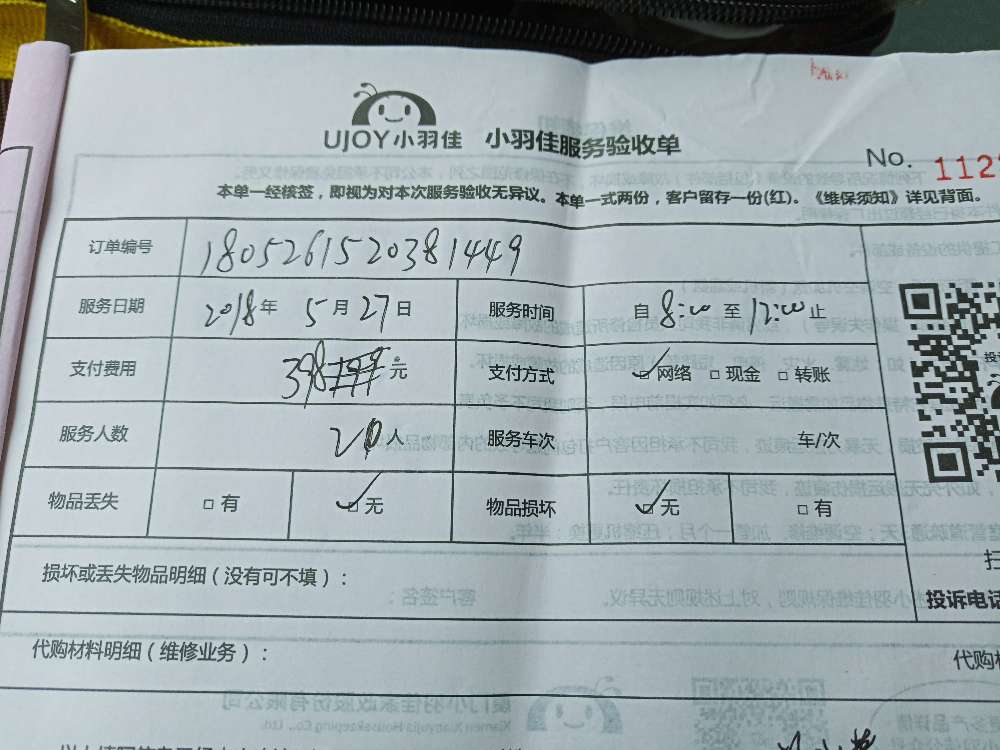 UJOY小羽佳 小羽佳服务验收单
No. 112
本单一经核签，即视为对本次服务验收无异议。本单一式两份，客户留存一份(红)。《维保须知》详见背面。
订单编号 180526152038 1449
服务日期 2018年 5月27日 服务时间 自8:00至12:00止
支付费用 398元 支付方式 ☑网络 □现金 □转账
服务人数 人 服务车次 车/次
物品丢失 □有 ☑无 物品损坏 ☑无 □有
损坏或丢失物品明细（没有可不填）：
投诉电话
代购材料明细（维修业务）：
代购